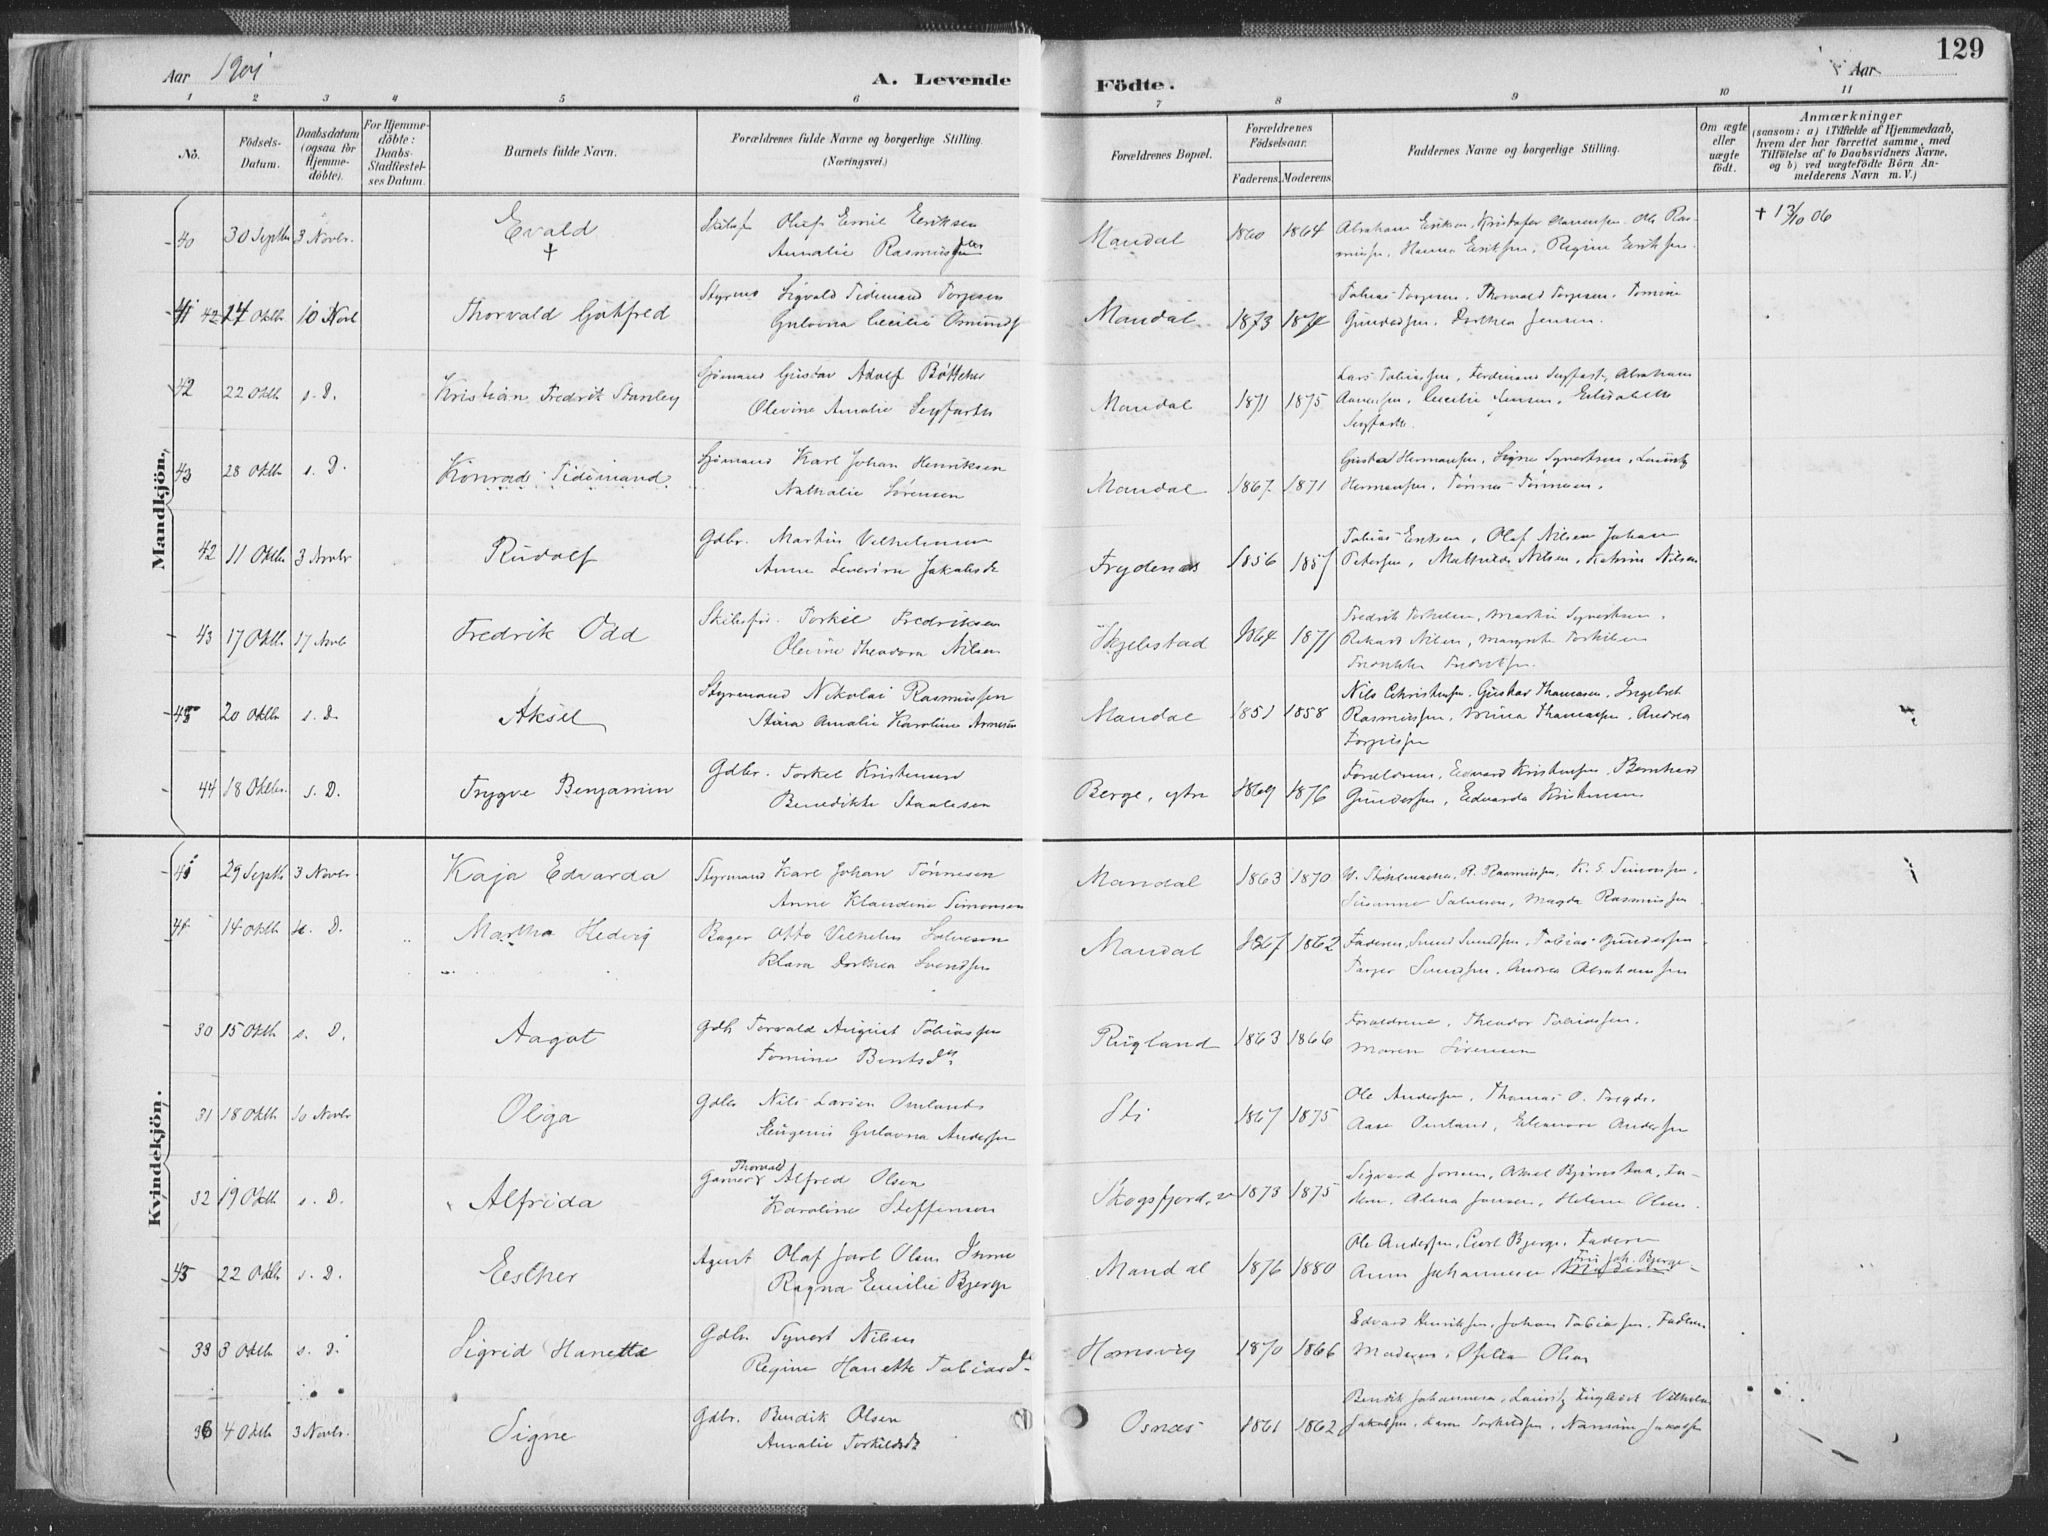 129
Aar 1901 A. Levende Födte. Aar
1 2 3 4 5 6 7 8 9 10 11
No. Födsels-Datum. Daabsdatum (ogsaa for Hjemmedöbte). For Hjemmedöbte: Daabs-Stadfæstelses Datum. Barnets fulde Navn. Forældrenes fulde Navne og borgerlige Stilling. (Næringsvei.) Forældrenes Bopæl. Forældrenes Födselsaar. Faderens. Moderens. Faddernes Navne og borgerlige Stilling. Om ægte eller uægte födt. Anmærkninger (saasom: a) i Tilfælde af Hjemmedaab, hvem der har forrettet samme, med Tilföielse af to Daabsvidners Navne, og b) ved uægtefödte Börn Anmelderens Navn m. V.)
Mandkjön.
40 30 Septbr 3 Novbr. Evald Oluf Emil Eriksen Mandal 1860 1864 Abraham Eriksen, Kristofer Ole Ras- + 13/10 06
+ Amalie Rasmusen Hanna Eriksen, Regine Eriksen
41 42 24 Oktbr 10 Novb Thorvald Gotfred Styrmd Sigvald Tidemand Torjesen Mandal 1873 1874 Tobias Torjesen, Thorvald Torjesen, Tomine
Gulovna Cecilie Osmunds Gundersen, Dorthea Jensen.
42 22 Oktb s. D. Kristian Fredrik Stanley Sjömand Gustav Adolf Bøttcher Mandal 1871 1875 Lars Tobiassen, Ferdinand Seyfarth, Abraham
Olevine Amalie Seyfarth Aanensen, Cecilie Jensen, Elisabeth
Seyfarth.
43 28 Oktb s. D. Konrad Tidemand Sjömand Karl Johan Henriksen Mandal 1867 1871 Gustav Hermansen, Signe Syvertsen, Lauritz
Nathalie Sørensen Hermansen, Tønnes Tønnesen.
42 11 Oktbr 3 Novbr Rudolf Gdbr. Martin Vilhelmsen Frydenæs 1856 1857 Tobias Eriksen, Olaf Nilsen Johan
Anne Severine Jakobsdr Petersen, Mathilde Nilsen, Katrine Nilsen
43 17 Oktbr 17 Novb Fredrik Odd Torkil Fredriksen Skjebstad 1864 1871 Fredrik Torkelsen, Martin Syvertsen,
Olevine Theodora Nilsen Rikard Nilsen, Torkilsen
Fredriksen.
45 20 Oktbr s. D. Aksel Styrmand Nikolai Rasmussen Mandal 1851 1858 Nils Christensen, Gustav Thomasen, Ingebret
Stina Amalie Karoline Arnesen Rasmussen, Mina Thomassen, Andrea
Torjussen
44 18 Oktbr. s. D. Trygve Benjamin Gdbr. Torkel Kristensen Berge, ytre 1869 1876 Forældrene, Edvard Kristensen, Bernhard
Benedikte Staalesen Gundersen, Edvarda Kristensen
Kvindekjön.
29 Septb 3 Novbr Kaja Edvarda Styrmand Karl Johan Tönnesen Mandal 1863 1870 R. Rasmussen, K. E. Simonsen,
Anne Klaudine Simonsen Susanne Salvesen, Magda Rasmussen
41 14 Oktb s. D. Martha Hedvig Bager Otto Vilhelm Salveson Mandal 1867 1862 Faderen, Svend Svendsen, Tobias Gundersen
Klara Dorthea Svendsen Svendsen, Andrea Abrahamsen
30 15 Oktb s. D. Aagot Gdb Torvald August Tobiassen Rugland 1863 1866 Forældrene, Theodor Tobiassen,
Tomine Bentsdtr Maren Sörensen
31 18 Oktb 10 Novbr Olga Gdbr Nils Larsen Omland Sti 1867 1875 Ole Andersen, Thomas O. Tregde,
Eugenie Gulovna Andersen Aase Omland, Eleonore Andersen
32 19 Oktb s. D. Alfrida Garver Thorvald Alfred Olsen Skogsfjord 1873 1875 Sigvard Jonsen, Aksel Bjørnstad, Fa-
Karoline Steffensen deren, Alma Jonsen, Helene Olsen.
45 22 Oktb s. D. Esther Agent Olaf Jarl Olsen Imme Mandal 1876 1880 Ole Andersen, Carl Bjerge, Faderen
Ragna Emilie Bjerge Anna Johannesen Fru Joh. Bjerge
33 3 Oktb s. D. Sigrid Hanette Gdbr Syvert Nilsen Homsvig 1870 1866 Edvard Henriksen, Johan Tobiassen, Faderen
Regine Hanette Tobiasdr Moderen, Ofelia Olsen
36 4 Oktb 3 Novbr. Signe Gdbr. Bendik Olsen Osnæs 1861 1862 Bendik Johannesen, Lauritz Vilhelm
Amalie Torkildsdr Jakobsen, Torkildsen, Jakobsen